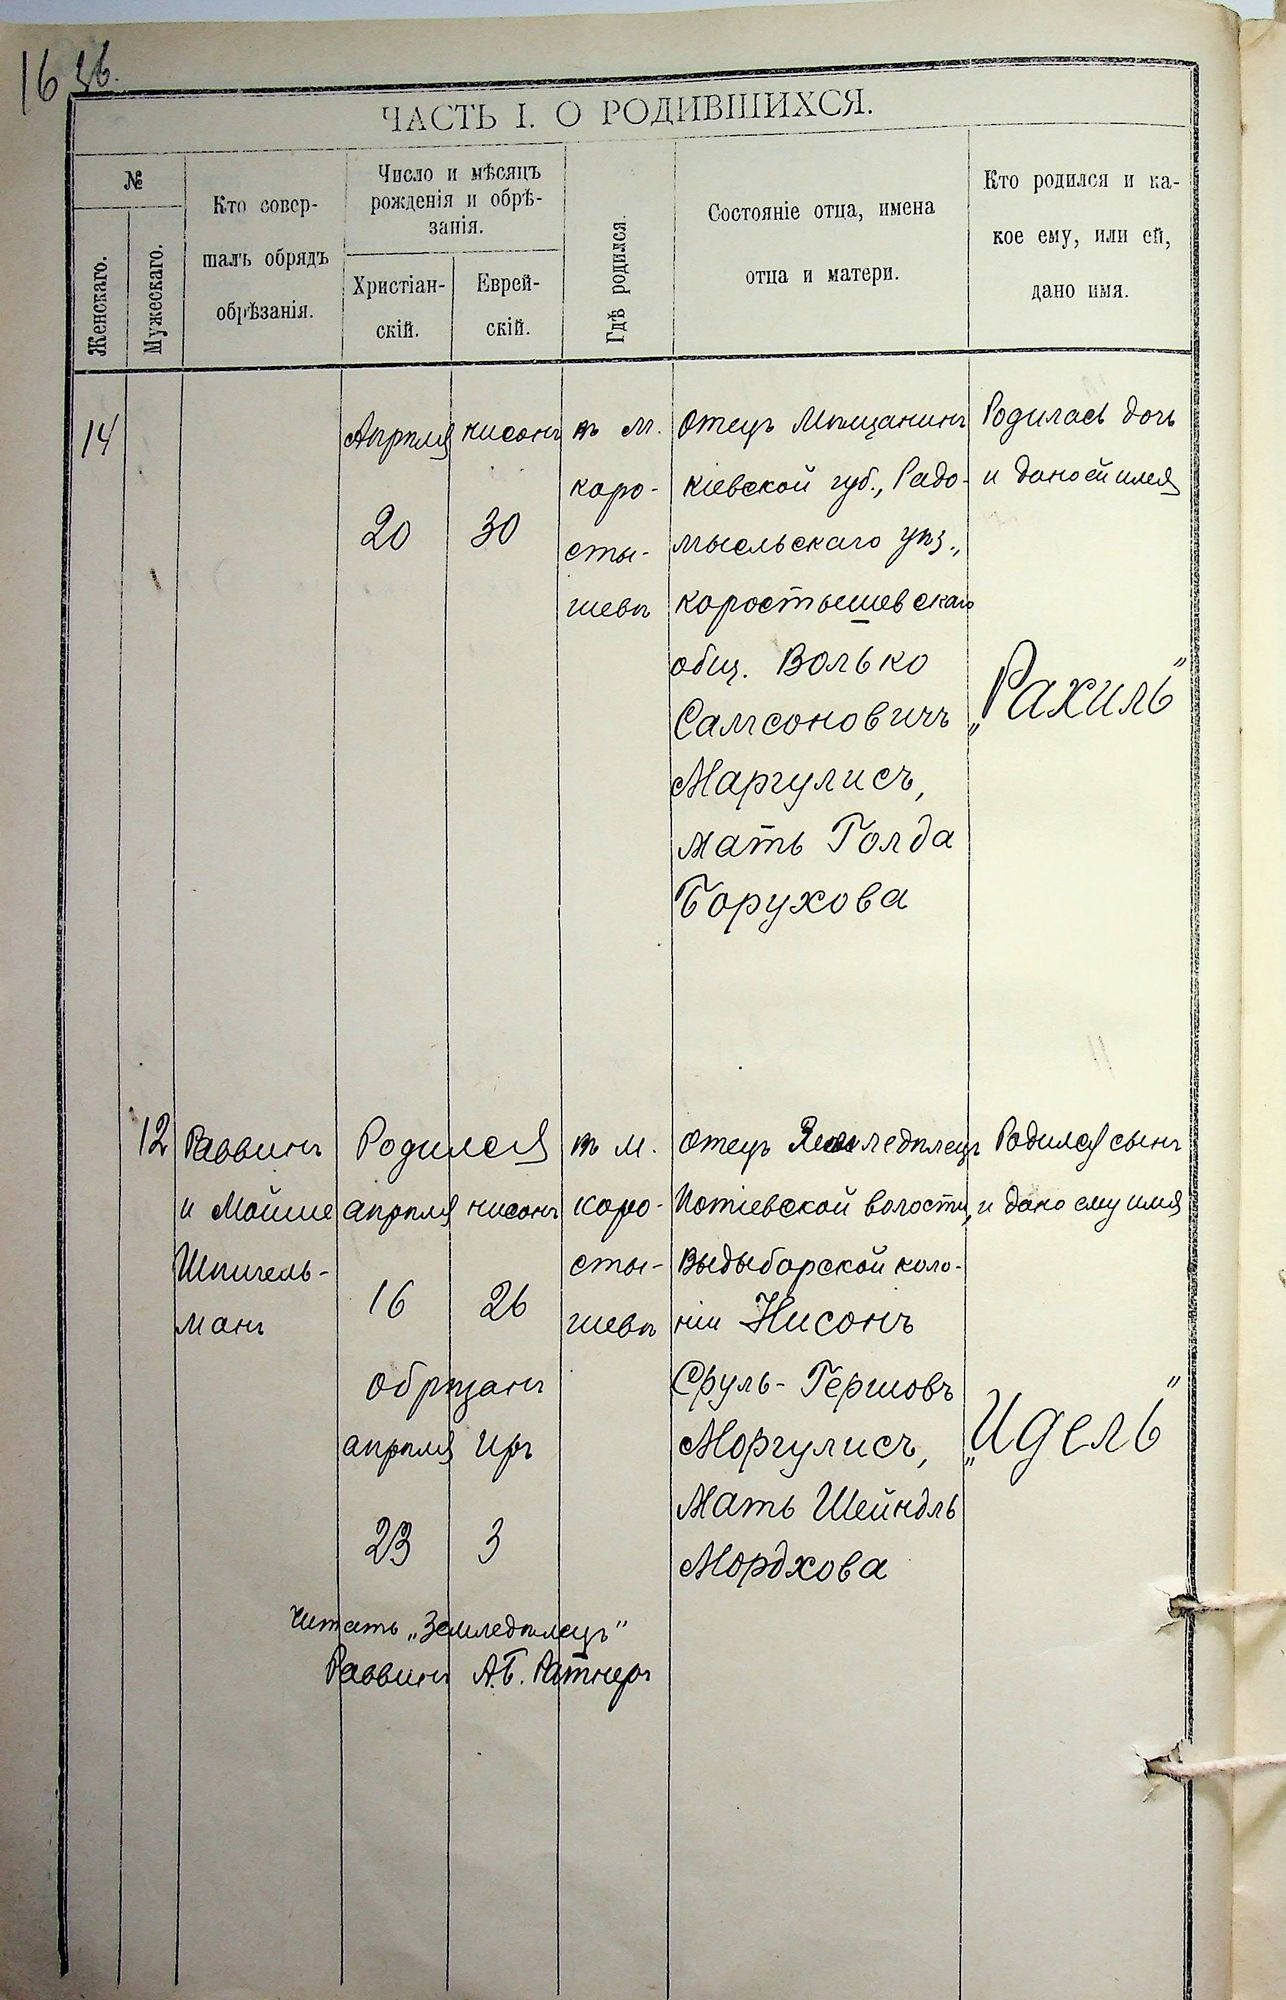 16 зв.
ЧАСТЬ I. О РОДИВШИХСЯ.
№
Женскаго.
Мужескаго.
Кто совер-
шалъ обрядъ
обрѣзанія.
Число и мѣсяцъ
рожденія и обрѣ-
занія.
Христіан-
скій.
Еврей-
скій.
Гдѣ родился.
Состояніе отца, имена
отца и матери.
Кто родился и ка-
кое ему, или ей,
дано имя.
14
Апрѣля
20
нисонъ
30
въ м.
Коро-
сты-
шевѣ
Отецъ Мѣщанинъ
Кіевской губ., Радо-
мысльскаго уѣз.,
Коростышевскаго
общ. Волько
Самсоновичъ
Маргулисъ,
мать Голда
Борухова
Родилась дочь
и дано ей имя
„Рахиль"
12
Раввинъ
и Мойше
Шпигель-
манъ
Родился
апрѣля нисонъ
16 26
Обрѣзанъ
апрѣля Иръ
23 3
въ м.
Коро-
сты-
шевѣ
Отецъ Земледѣлецъ
Потіевской волости,
Выдыборской коло-
ніи Нисонъ
Сруль-Гершовъ
Моргулисъ,
Мать Шейндль
Мордхова
Родился сынъ
и дано ему имя
„Идель"
Читать „Земледѣлецъ"
Раввинъ А.Б. Ратнеръ